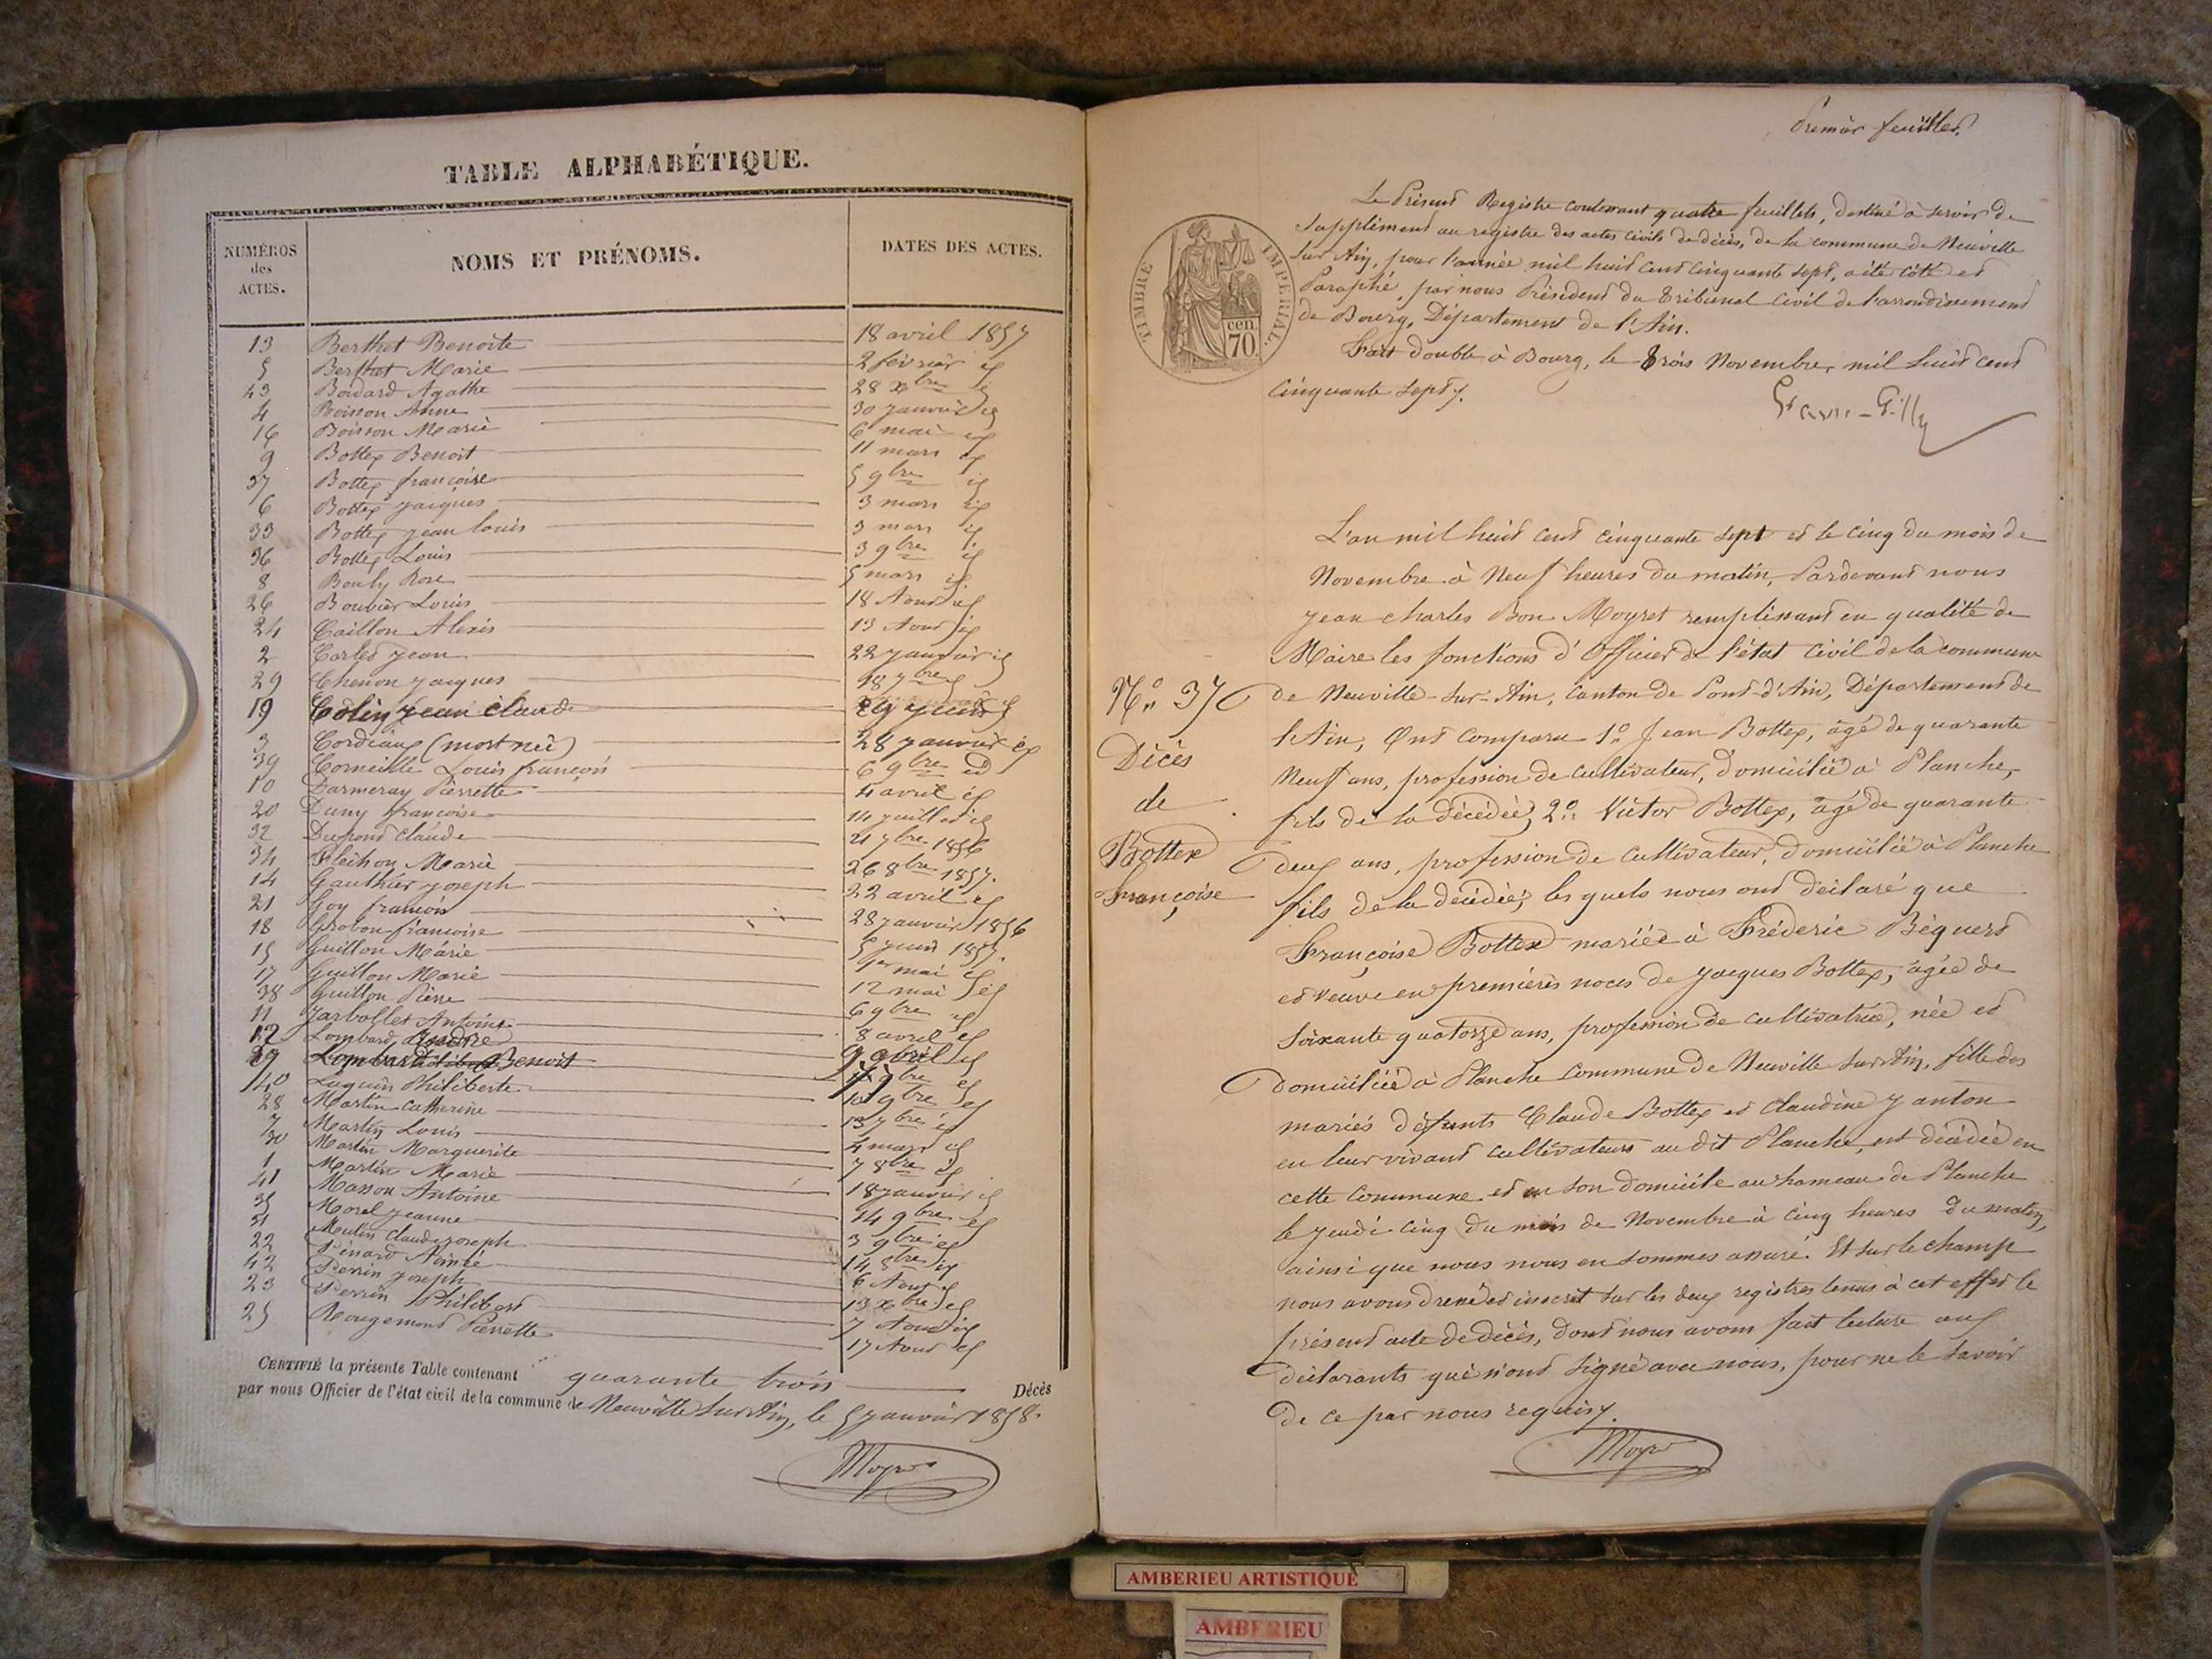 TABLE ALPHABÉTIQUE.
NUMÉROS des ACTES.
NOMS ET PRÉNOMS.
DATES DES ACTES.
13 Berthet Benoite 18 avril 1857
5 Berthet Marie 2 février id
43 Boidard Agathe 28 xbre id
4 Boisson Anne 30 janvier id
16 Boisson Marie 6 mai id
9 Bottex Benoit 11 mars id
37 Bottex françoise 5 9bre id
6 Bottex jacques 3 mars id
33 Bottex jean louis 3 mars id
36 Bottex Louis 3 9bre id
8 Bouly Rose 5 mars id
26 Bouvier Louis 18 Aout id
24 Caillon Alexis 13 Aout id
2 Carlet jean 22 janvier id
29 Chenon jacques 18 7bre
19 Colin jean claude
3 Cordiaux (mort né) 28 janvier id
39 Corneille Louis françois 6 9bre id
10 Darmeray Pierrette 4 avril id
20 Dany françoise 14 juillet id
32 Dupond Claude 21 7bre 1856
34 Marie 26 8bre 1857.
14 Gauthier joseph 22 avril id
21 Goy françois 28 janvier 1856
18 Grobon françoise 5 juin 1857.
15 Guillon Marie 1er mai id
17 Guillon Marie 12 mai id
38 Guillon Pierre 6 9bre id
11 Jarbollet Antoine 8 avril id
12 Lombard André 9 avril id
Lombard Benoit 9bre id
40 Luquin Philiberte 10 9bre id
28 Martin Catherine 13 7bre id
7 Martin Louis 4 mars id
30 Martin Marguerite 7 8bre id
1 Martin Marie 18 janvier id
41 Masson Antoine 14 9bre id
35 Morel jeanne 3 9bre id
31 Moulin Claude joseph 14 8bre id
22 Pénard Aimée 6 Aout id
42 Perrin joseph 13 xbre id
23 Perrin Philibert 7 Aout id
25 Rougemont Pierrette 17 Aout id
CERTIFIÉ la présente Table contenant quarante trois Décès
par nous Officier de l'état civil de la commune de Neuville sur Ain, le 5 janvier 1858.
Moyret
Premier feuillet.
Le Présent Registre contenant quatre feuillets, destiné à servir de
Supplément au registre des actes civils de décès, de la commune de Neuville
sur Ain, pour l'année mil huit cent cinquante sept, a été côté et
Paraphé, par nous Président du Tribunal Civil de l'arrondissement
de Bourg, Département de l'Ain.
Fait double à Bourg, le trois Novembre, mil huit cent
cinquante sept.
TIMBRE IMPERIAL.
cen. 70
L'an mil huit cent cinquante sept et le cinq du mois de
Novembre à Neuf heures du matin, Pardevant nous
jean charles Bon Moyret remplissant en qualité de
Maire les fonctions d'Officier de l'état civil de la commune
N° 37
de Neuville-sur-Ain, canton de Pont-d'Ain, Département de
l'Ain, Ont comparu 1° Jean Bottex, âgé de quarante
Décès
Neuf ans, profession de cultivateur, domicilié à Planche,
de
fils de la décédée, 2° Victor Bottex, âgé de quarante
Bottex
deux ans, profession de cultivateur, domicilié à Planche
Françoise
fils de la décédée, les quels nous ont déclaré que
Françoise Bottex mariée à Fréderic Béguet
et veuve en premières noces de jacques Bottex, âgée de
Soixante quatorze ans, profession de cultivatrice, née et
domiciliée à Planche commune de Neuville sur Ain, fille des
mariés défunts Claude Bottex et Claudine janton
en leur vivant cultivateurs au dit Planche, est décédée en
cette commune et en son domicile au hameau de Planche
le jeudi cinq du mois de Novembre à cinq heures du matin,
ainsi que nous nous en sommes assuré. Et sur le champ
nous avons dressé et inscrit sur les deux registres tenus à cet effet le
présent acte de décès, dont nous avons fait lecture aux
déclarants qui n'ont signé avec nous, pour ne le savoir
de ce par nous requis.
Moyret
AMBERIEU ARTISTIQUE
AMBERIEU